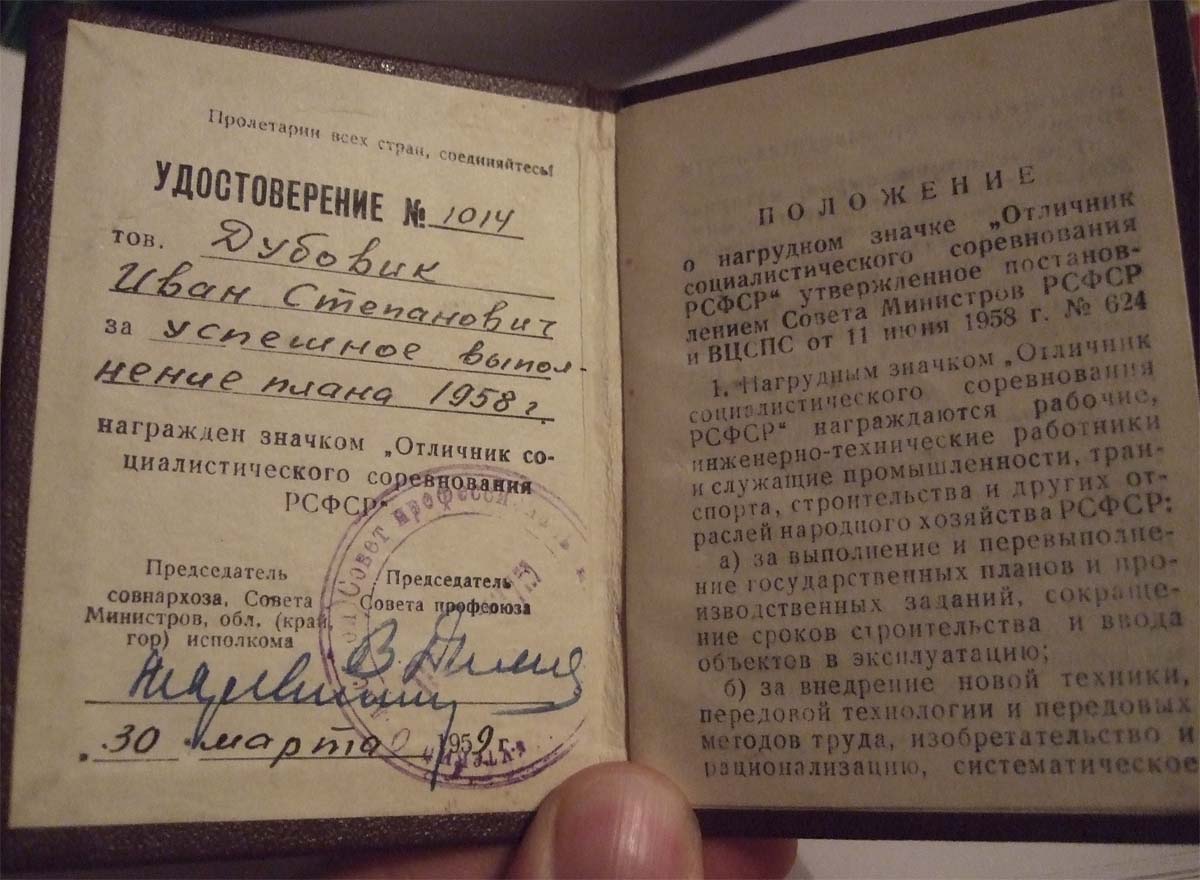 Пролетарии всех стран, соединяйтесь!
УДОСТОВЕРЕНИЕ № 1014
тов. Дубовик
Иван Степанович
за успешное выпол-
нение плана 1958 г.
награжден значком „Отличник со-
циалистического соревнования
РСФСР“
Председатель
совнархоза, Совета
Министров, обл. (край,
гор) исполкома
Председатель
Совета профсоюза
Совет профессі
„30 марта 1959 г.
ПОЛОЖЕНИЕ
о нагрудном значке „Отличник
социалистического соревнования
РСФСР“ утвержденное постанов-
лением Совета Министров РСФСР
и ВЦСПС от 11 июня 1958 г. № 624
1. Нагрудным значком „Отличник
социалистического соревнования
РСФСР“ награждаются рабочие,
инженерно-технические работники
и служащие промышленности, тран-
спорта, строительства и других от-
раслей народного хозяйства РСФСР:
а) за выполнение и перевыполне-
ние государственных планов и про-
изводственных заданий, сокраще-
ние сроков строительства и ввода
объектов в эксплуатацию;
б) за внедрение новой техники,
передовой технологии и передовых
методов труда, изобретательство и
рационализацию, систематическое